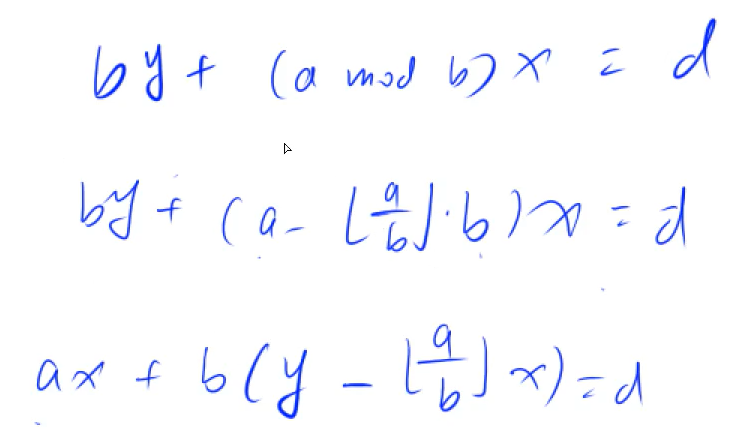 by + (a mod b) x = d
by + (a - ⌊a/b⌋·b) x = d
ax + b(y - ⌊a/b⌋ x) = d